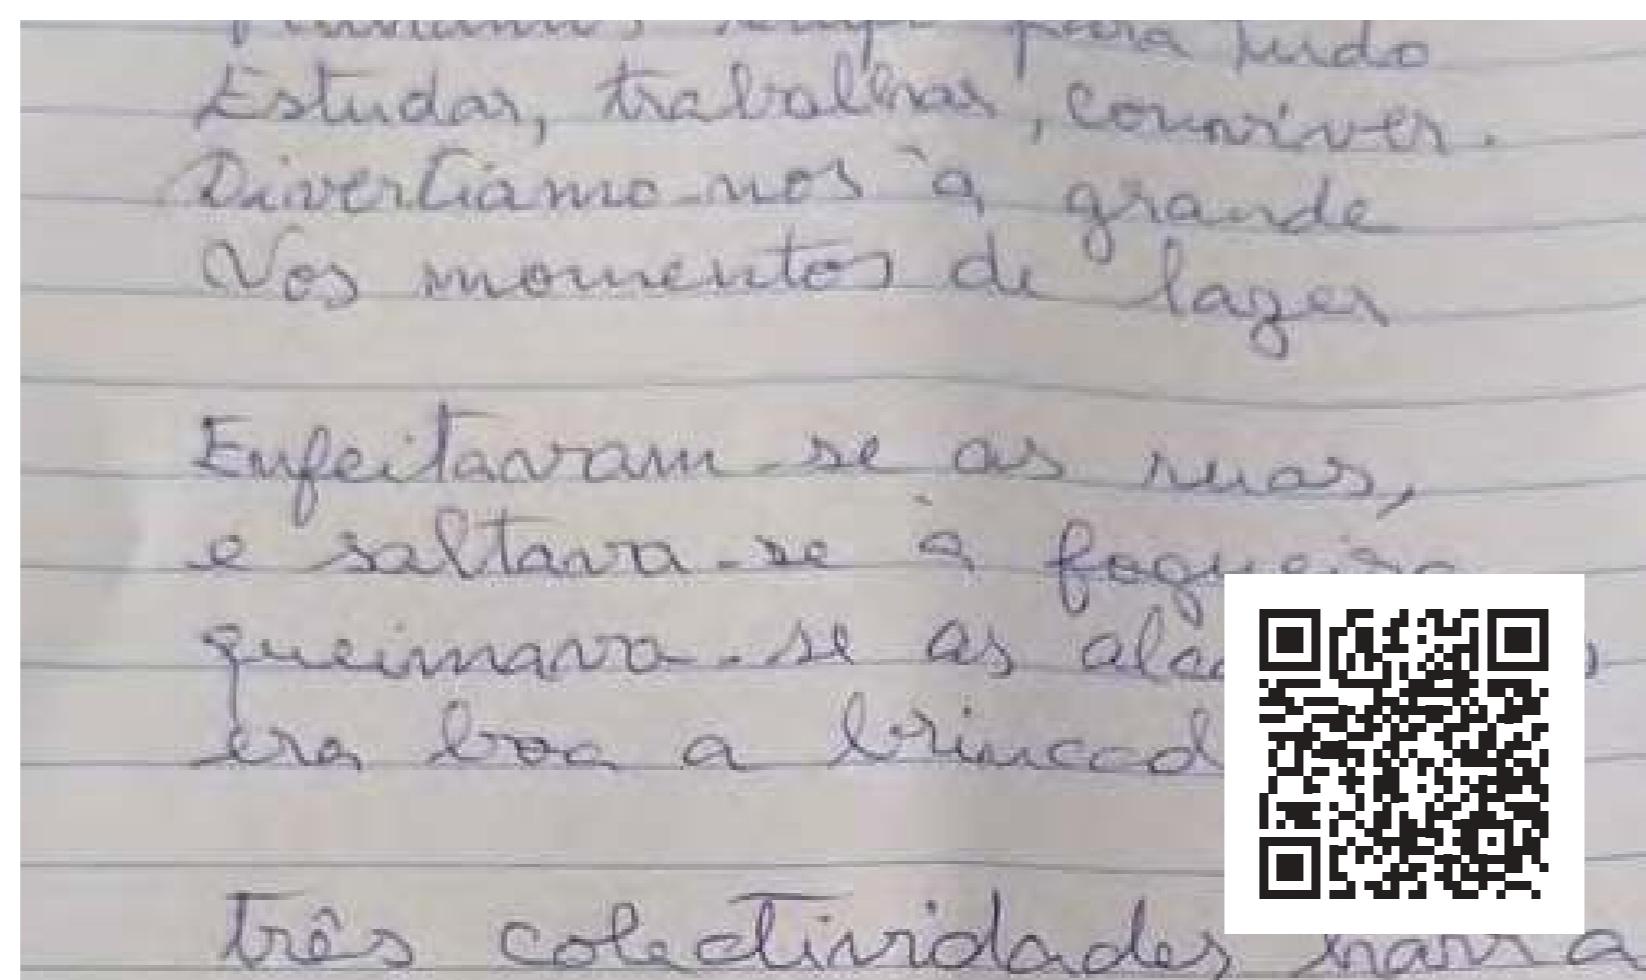 para tudo
Estudar, trabalhar, conviver.
Divertiamo-nos à grande
Nos momentos de lazer
Enfeitavam-se as ruas,
e saltava-se à fogueira
queimava-se as
era boa a
três colectividades havia